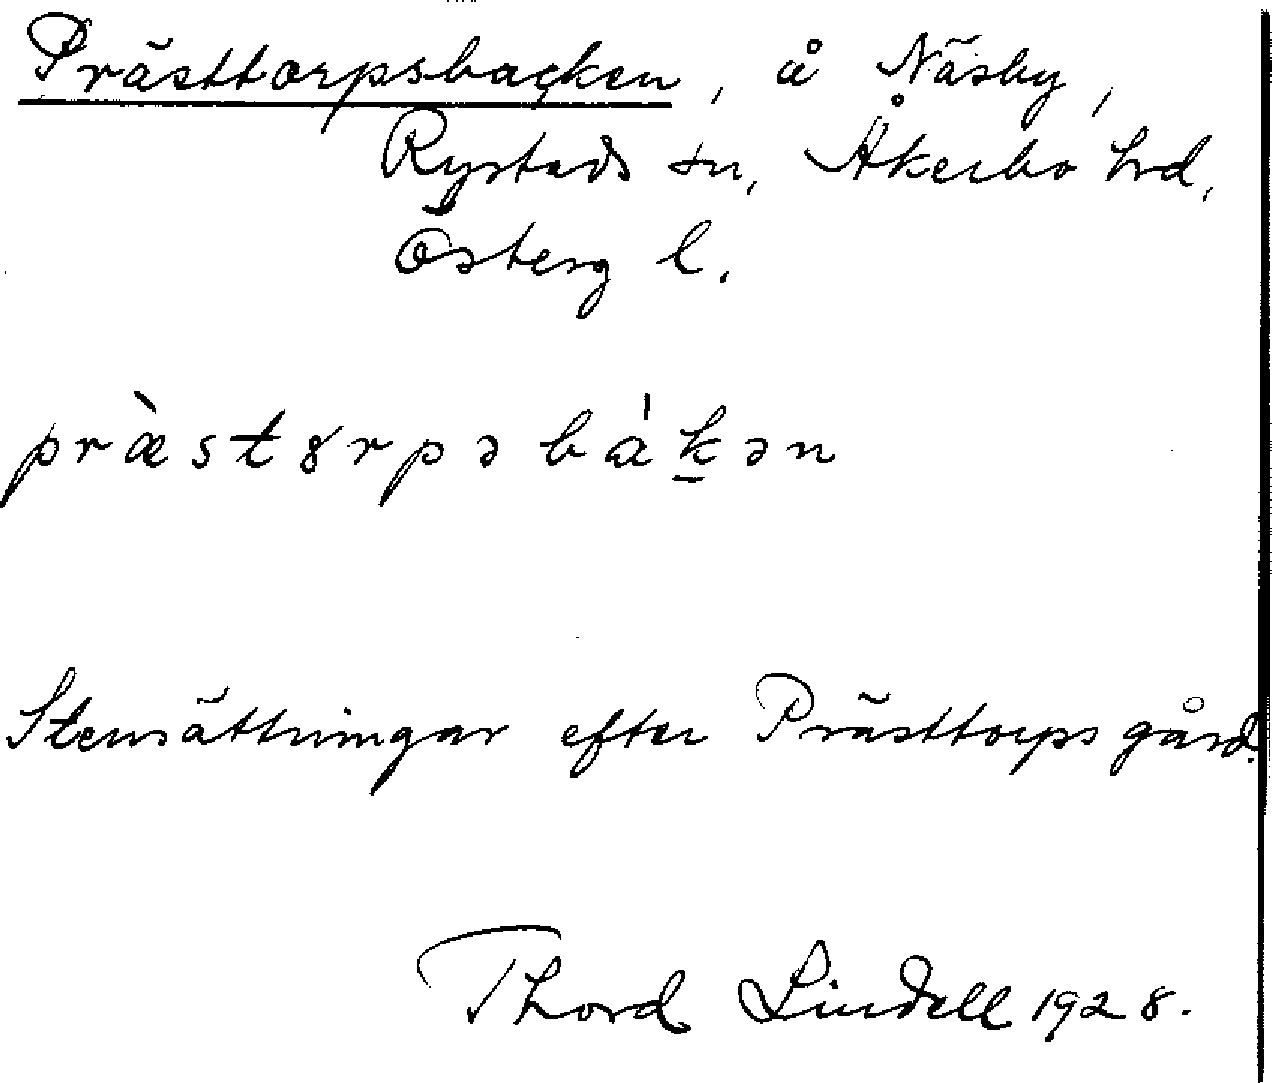 Prästtorpsbacken, å Näsby,
Rystads sn, Åkerbo hd,
Österg l.
præ̀stȣrpsbák̠ən
Stensättningar efter Prästtorps gård.
Thord Lindell 1928.